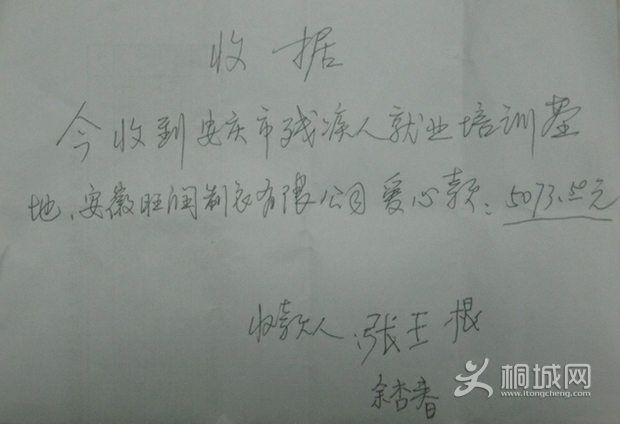 收据
今收到安庆市残疾人就业培训基
地、安徽旺润制衣有限公司爱心款：5073.50元
收款人：张王根
余杏春
桐城网
www.itongcheng.com